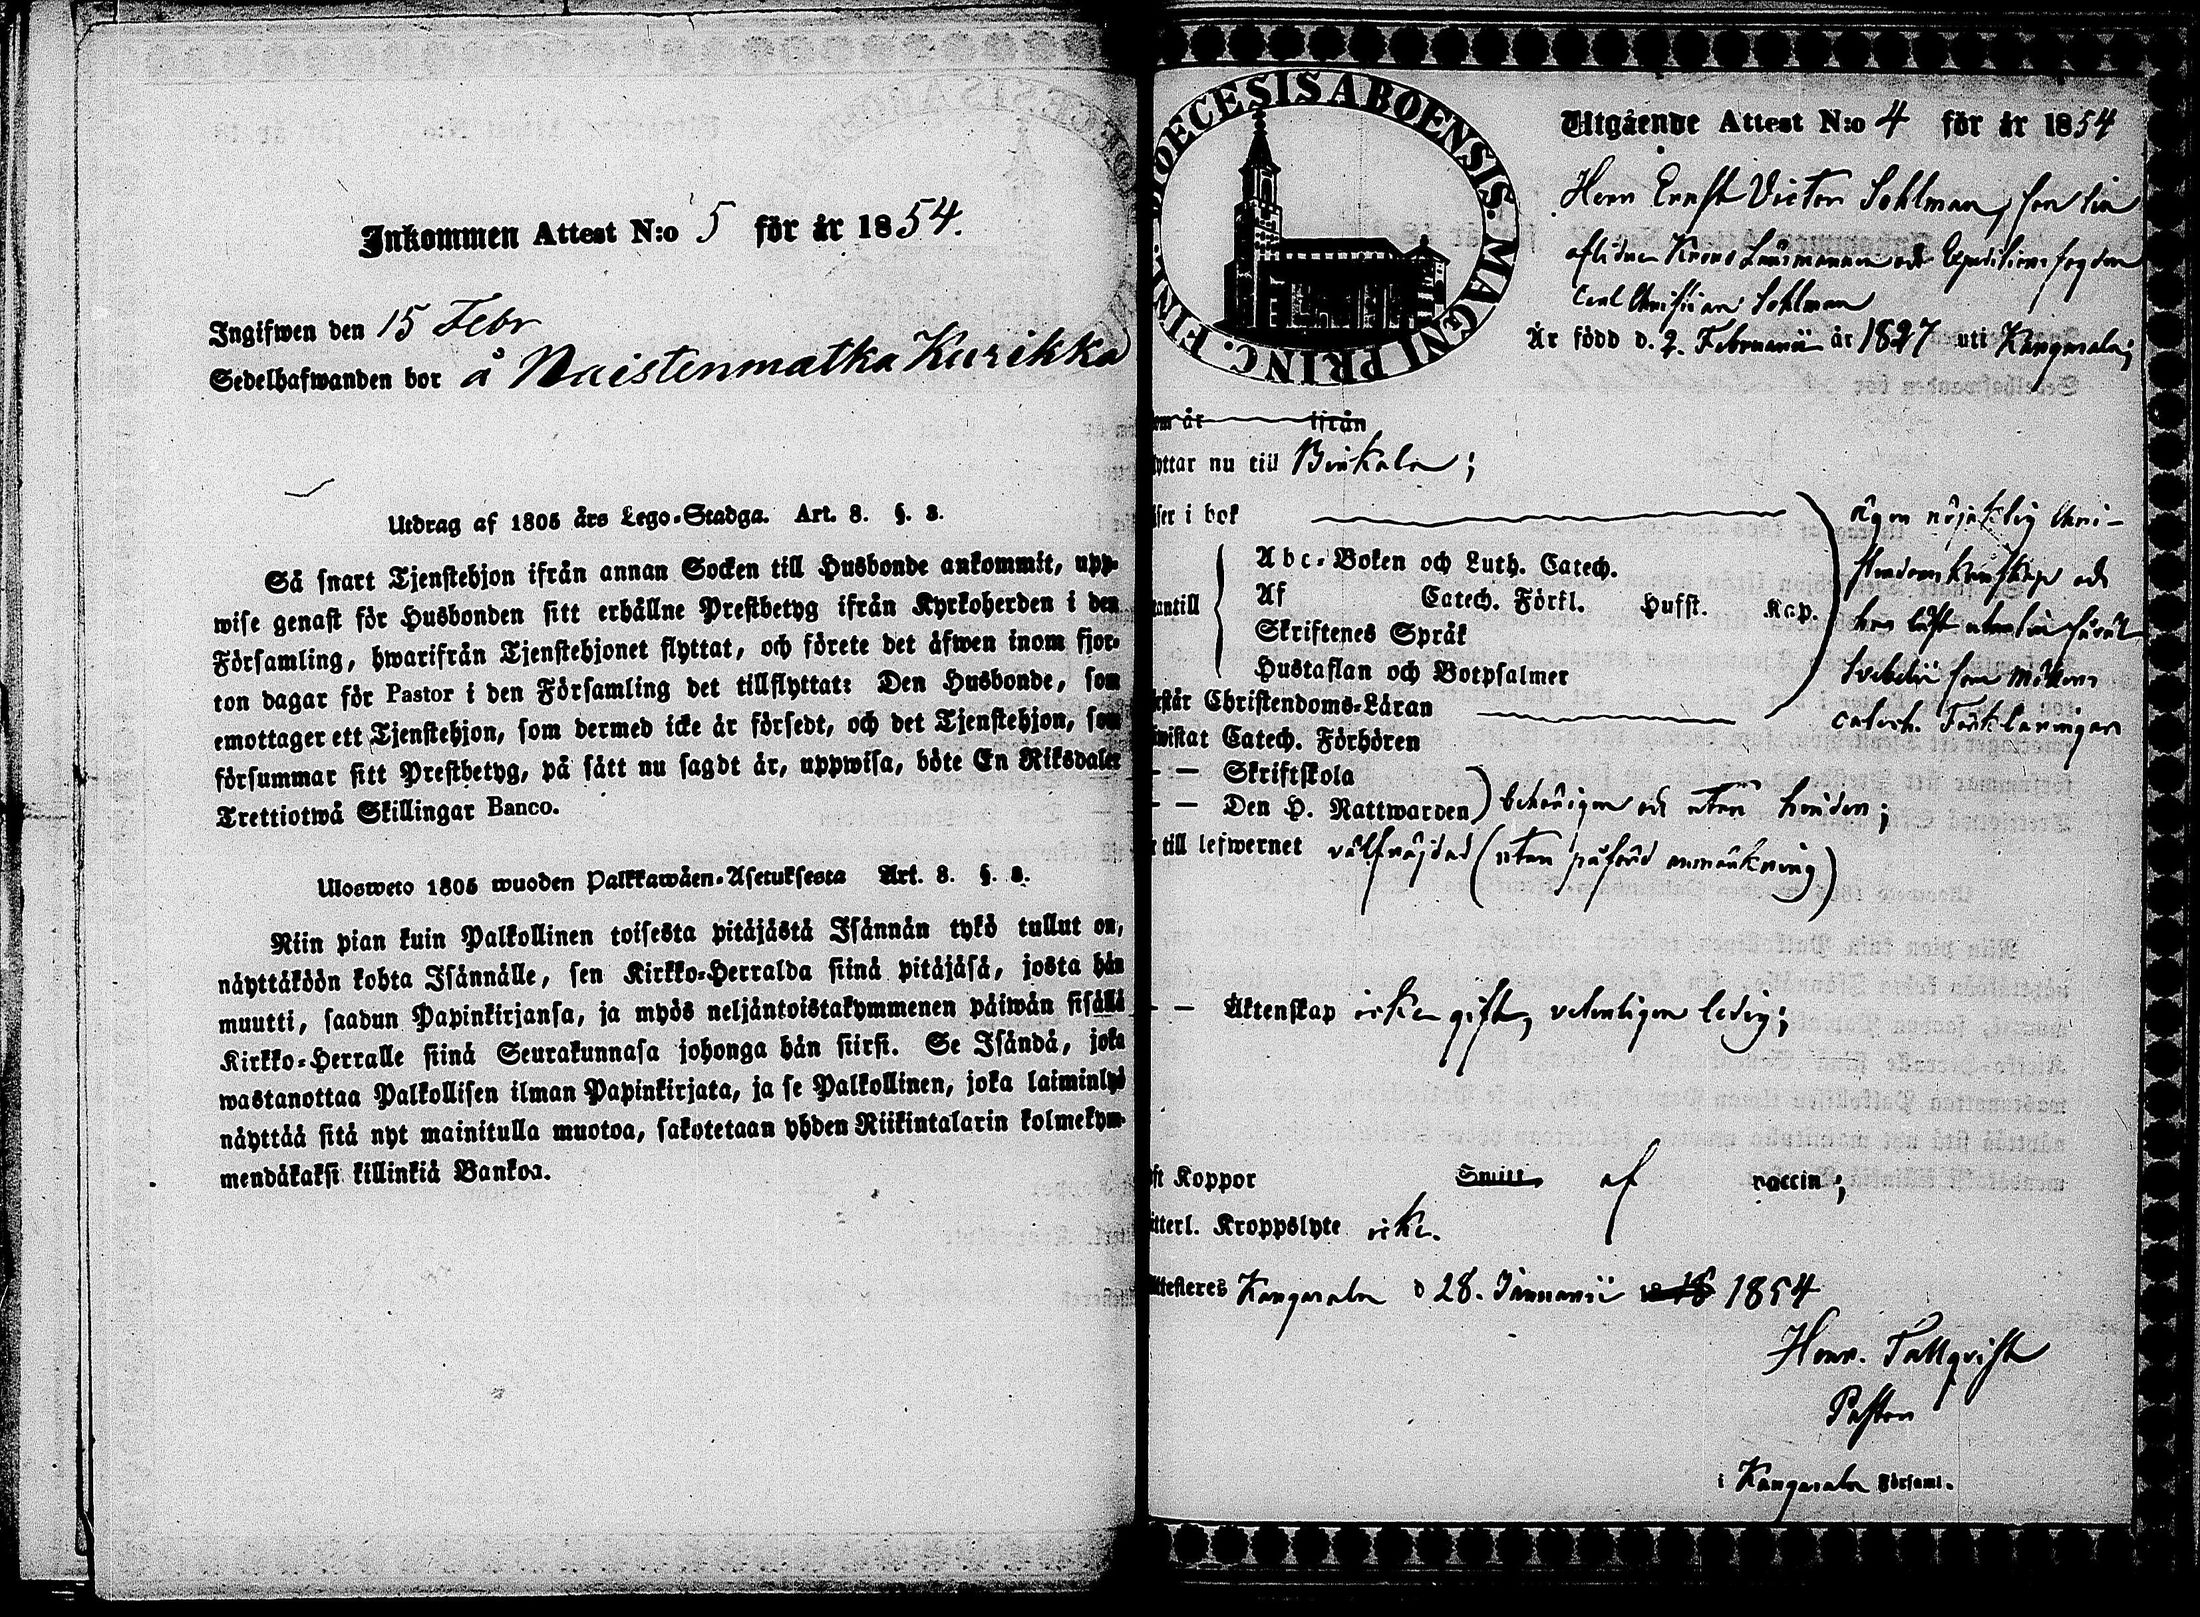 Inkommen Attest N:o 5 för år 1854.
Ingifwen den 15 Febr
Sedelhafwanden bor å Naistenmatka Kurikka
Utdrag af 1805 års Lego-Stadga. Art. 8. §. 8.
Så snart Tjenstehjon ifrån annan Socken till Husbonde ankommit, upp-
wise genast för Husbonden sitt erhållne Prestbetyg ifrån Kyrkoherden i den
Församling, hwarifrån Tjenstehjonet flyttat, och förete det äfwen inom fjor-
ton dagar för Pastor i den Församling det tillflyttat: Den Husbonde, som
emottager ett Tjenstehjon, som dermed icke är försedt, och det Tjenstehjon, som
försummar sitt Prestbetyg, på sätt nu sagdt är, uppwisa, böte En Riksdaler
Trettiotwå Skillingar Banco.
Ulosweto 1805 wuoden Palkkawäen-Asetuksesta Art. 8. §. 8.
Niin pian kuin Palkollinen toisesta pitäjästä Isännän tykö tullut on,
näyttäköön kohta Isännälle, sen Kirkko-Herralda siinä pitäjäsä, josta hän
muutti, saadun Papinkirjansa, ja myös neljäntoistakymmenen päiwän sisällä
Kirkko-Herralle siinä Seurakunnasa johonga hän siirsi. Se Isändä, joka
wastanottaa Palkollisen ilman Papinkirjata, ja se Palkollinen, joka laiminlyö
näyttää sitä nyt mainitulla muotoa, sakotetaan yhden Riikintalarin kolmekym-
mendäkaksi killinkiä Bankoa.
DIOECESIS ABOENSIS. MAGNI PRINC. FINL.
Utgående Attest N:o 4 för år 1854
Herr Ernst Victor Sohlman, son till
aflidne Krono Länsmannen och Expeditions fogden
Carl Christian Sohlman
Är född d. 2. Februarii år 1827 uti Kangasala;
om år ifrån
yttar nu till Birkala;
ser i bok
antill
Abc-Boken och Luth. Catech.
Af Catech. Förkl. Hufst. Kap.
Skriftenes Språk
Hustaflan och Botpsalmer
Ägen nöjaktig Chri-
stendoms kunskap och
har läst utan till såväl
Svebelii som Möllers
catech. Förklaringar
rstår Christendoms-Läran
wistat Catech. Förhören
— — Skriftskola
— — Den H. Nattwarden behörigen och utan hinder;
till lefwernet välfräjdad (utan påförd anmärkning)
— — Äktenskap icke gift, veterligen ledig;
ft Koppor Smitt, af vaccin;
itterl. Kroppslyte icke.
ttesteres Kangasala d 28. Januarii 1854
Henr. Tallqvist
Pastor
i Kangasala Församl.